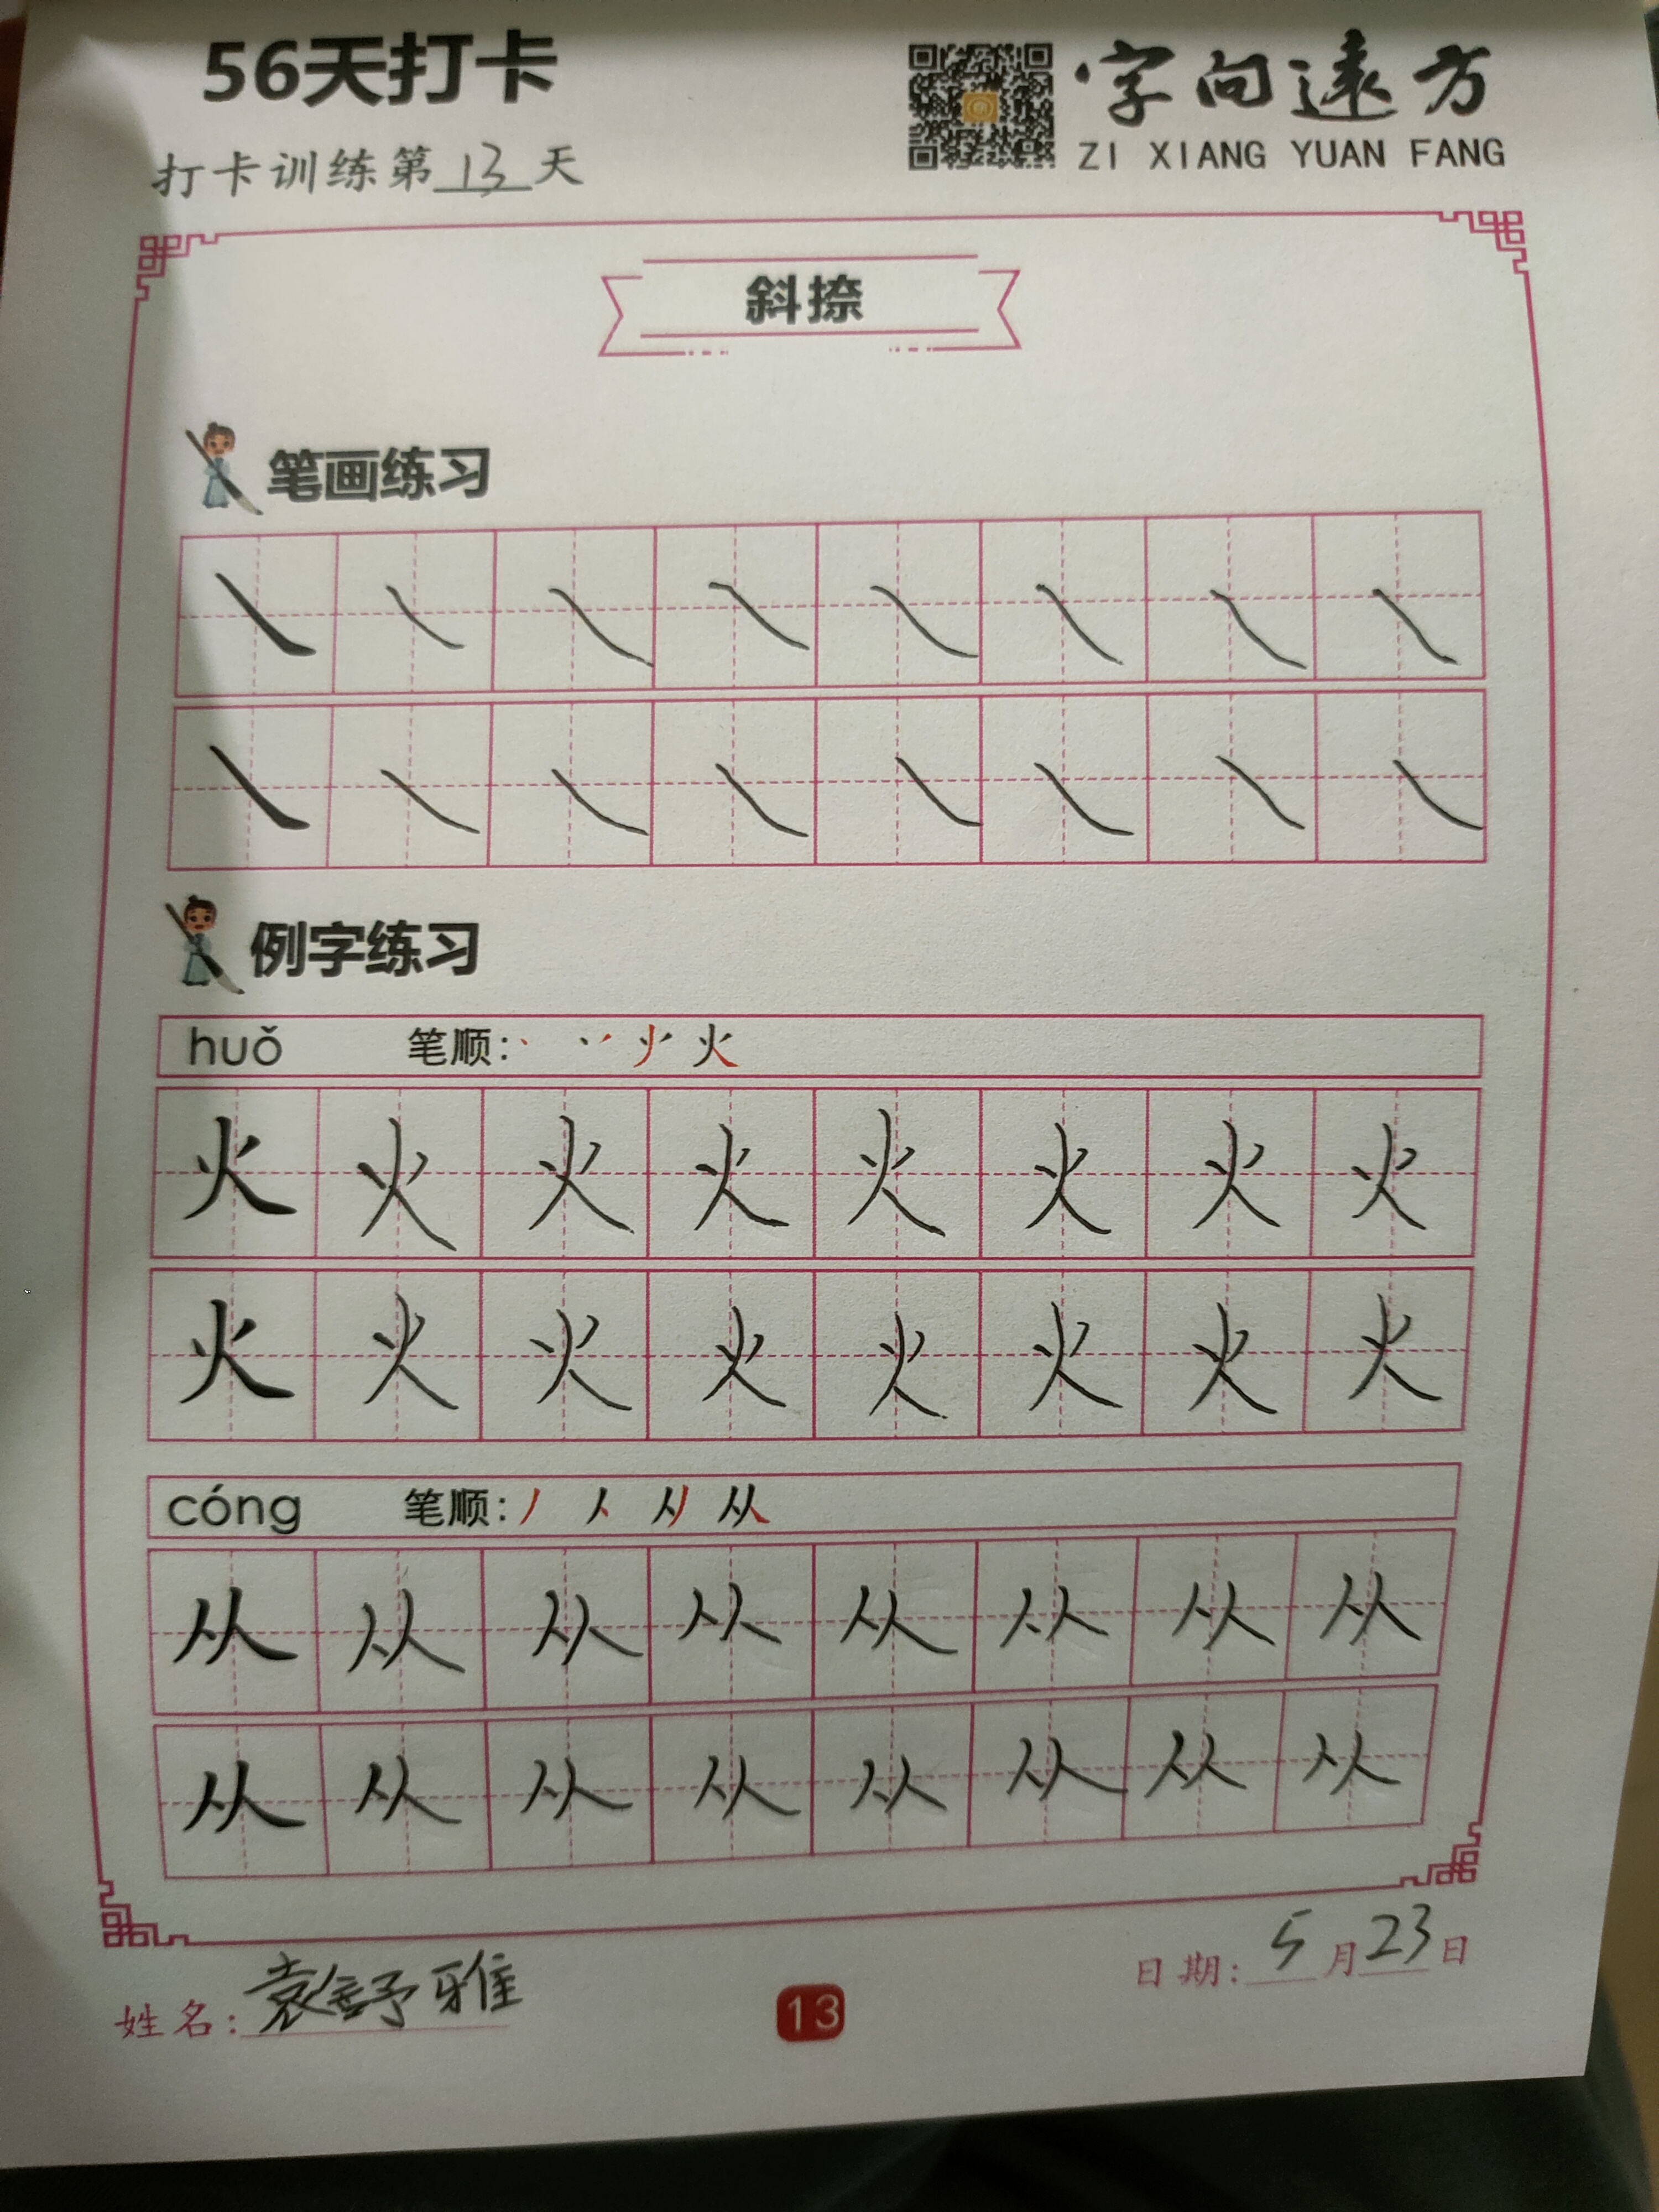 56天打卡
字向遠方
ZI XIANG YUAN FANG
打卡训练第13天
斜捺
笔画练习
例字练习
huǒ 笔顺: 火
火 火 火 火 火 火 火 火
火 火 火 火 火 火 火 火
cóng 笔顺: 丿 人 从
从 从 从 从 从 从 从 从
从 从 从 从 从 从 从 从
姓名: 袁舒雅
13
日期: 5月23日